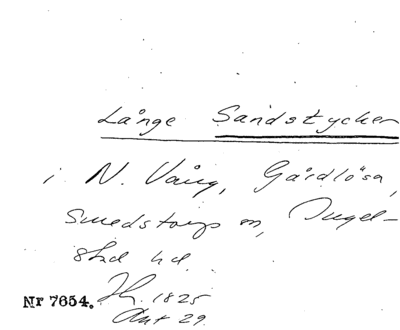 Långe Sandstycken
i N. Vång, Gårdlösa,
Smedstorps sn, Ingel-
stad hd.
Nr 7654. 1825
Akt 29.